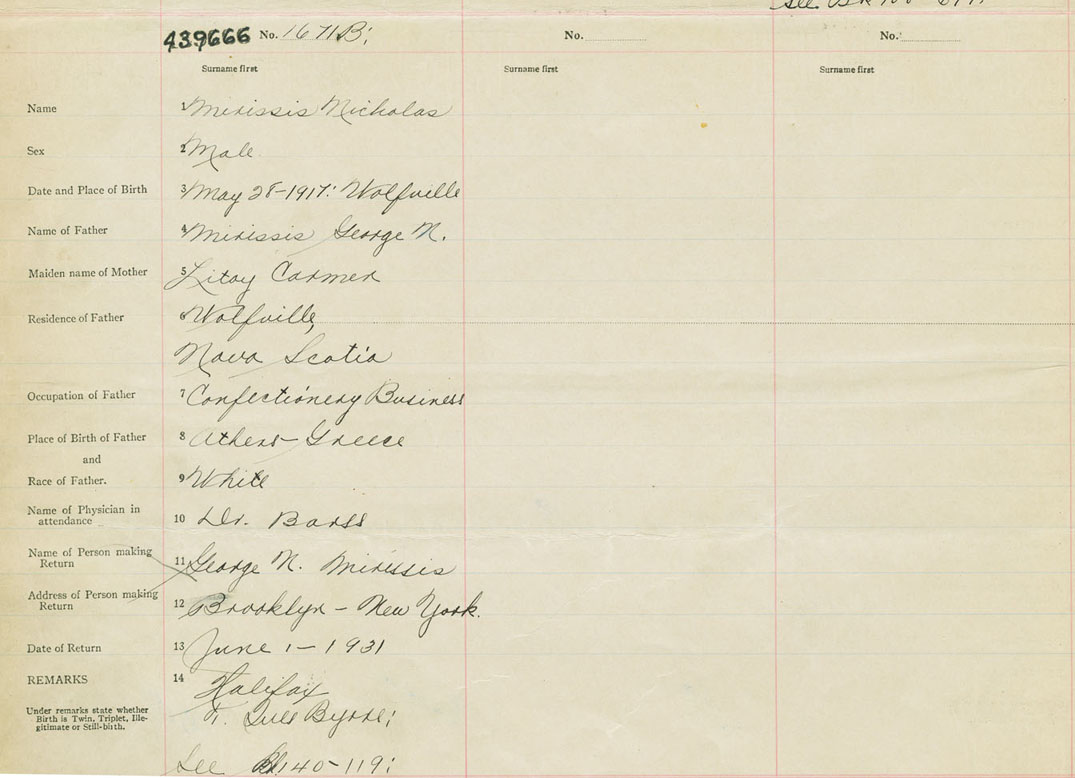 See Bk 100
439666 No. 1671B; No. No.
Surname first Surname first Surname first
Name 1 Mirissis Nicholas
Sex 2 Male
Date and Place of Birth 3 May 28-1917: Wolfville
Name of Father 4 Mirissis George N.
Maiden name of Mother 5 Carmen
Residence of Father 6 Wolfville,
Nova Scotia
Occupation of Father 7 Confectionery Business
Place of Birth of Father 8 Athens- Greece
and
Race of Father. 9 White
Name of Physician in
attendance 10 Dr. Barss
Name of Person making
Return 11 George N. Mirissis
Address of Person making
Return 12 Brooklyn - New York.
Date of Return 13 June 1-1931
REMARKS 14 Halifax
Under remarks state whether
Birth is Twin, Triplet, Ille-
gitimate or Still-birth.
Byrne;
See Bk 140-119;